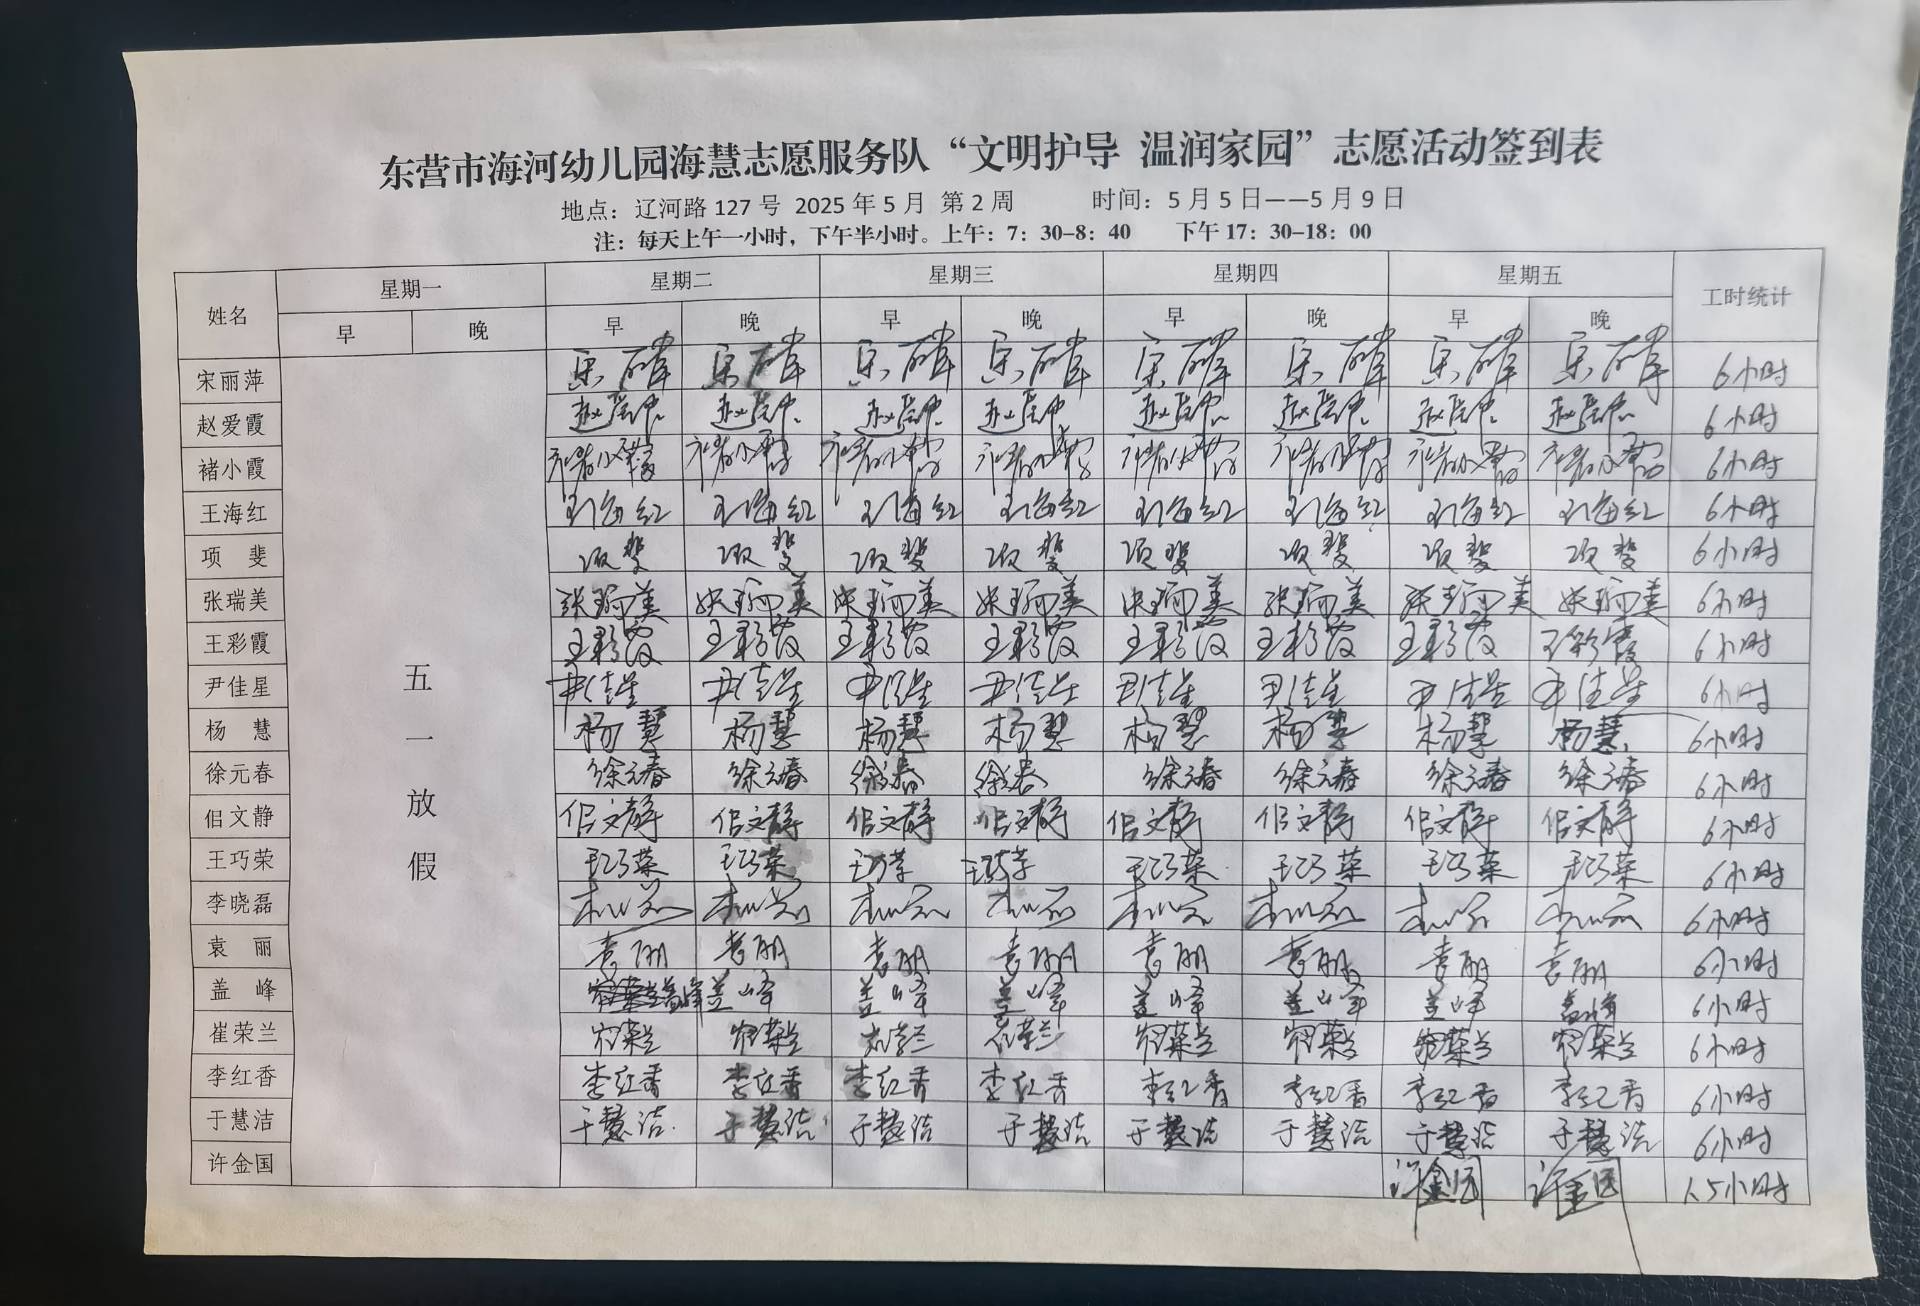 东营市海河幼儿园海慧志愿服务队“文明护导 温润家园”志愿活动签到表
地点：辽河路 127 号 2025 年 5 月 第 2 周 时间：5 月 5 日——5 月 9 日
注：每天上午一小时，下午半小时。上午：7：30-8：40 下午 17：30-18：00
姓名 星期一 星期二 星期三 星期四 星期五 工时统计
早 晚 早 晚 早 晚 早 晚 早 晚
宋丽萍 6小时
赵爱霞 6小时
褚小霞 褚小霞 褚小霞 褚小霞 褚小霞 褚小霞 褚小霞 褚小霞 褚小霞 6小时
王海红 王海红 王海红 王海红 王海红 王海红 王海红 王海红 王海红 6小时
项 斐 项斐 项斐 项斐 项斐 项斐 项斐 项斐 项斐 6小时
张瑞美 张瑞美 张瑞美 张瑞美 张瑞美 张瑞美 张瑞美 张瑞美 张瑞美 6小时
王彩霞 王彩霞 王彩霞 王彩霞 王彩霞 王彩霞 王彩霞 王彩霞 王彩霞 6小时
尹佳星 尹佳星 尹佳星 尹佳星 尹佳星 尹佳星 尹佳星 尹佳星 尹佳星 6小时
杨 慧 杨慧 杨慧 杨慧 杨慧 杨慧 杨慧 杨慧 杨慧 6小时
徐元春 徐元春 徐元春 徐元春 徐元春 徐元春 徐元春 徐元春 徐元春 6小时
佀文静 佀文静 佀文静 佀文静 佀文静 佀文静 佀文静 佀文静 佀文静 6小时
王巧荣 王巧荣 王巧荣 王巧荣 王巧荣 王巧荣 王巧荣 王巧荣 王巧荣 6小时
李晓磊 6小时
袁 丽 袁丽 袁丽 袁丽 袁丽 袁丽 袁丽 袁丽 袁丽 6小时
盖 峰 盖峰 盖峰 盖峰 盖峰 盖峰 盖峰 盖峰 盖峰 6小时
崔荣兰 崔荣兰 崔荣兰 崔荣兰 崔荣兰 崔荣兰 崔荣兰 崔荣兰 崔荣兰 6小时
李红香 李红香 李红香 李红香 李红香 李红香 李红香 李红香 李红香 6小时
于慧洁 于慧洁 于慧洁 于慧洁 于慧洁 于慧洁 于慧洁 于慧洁 于慧洁 6小时
许金国 许金国 许金国 1.5小时
五一放假